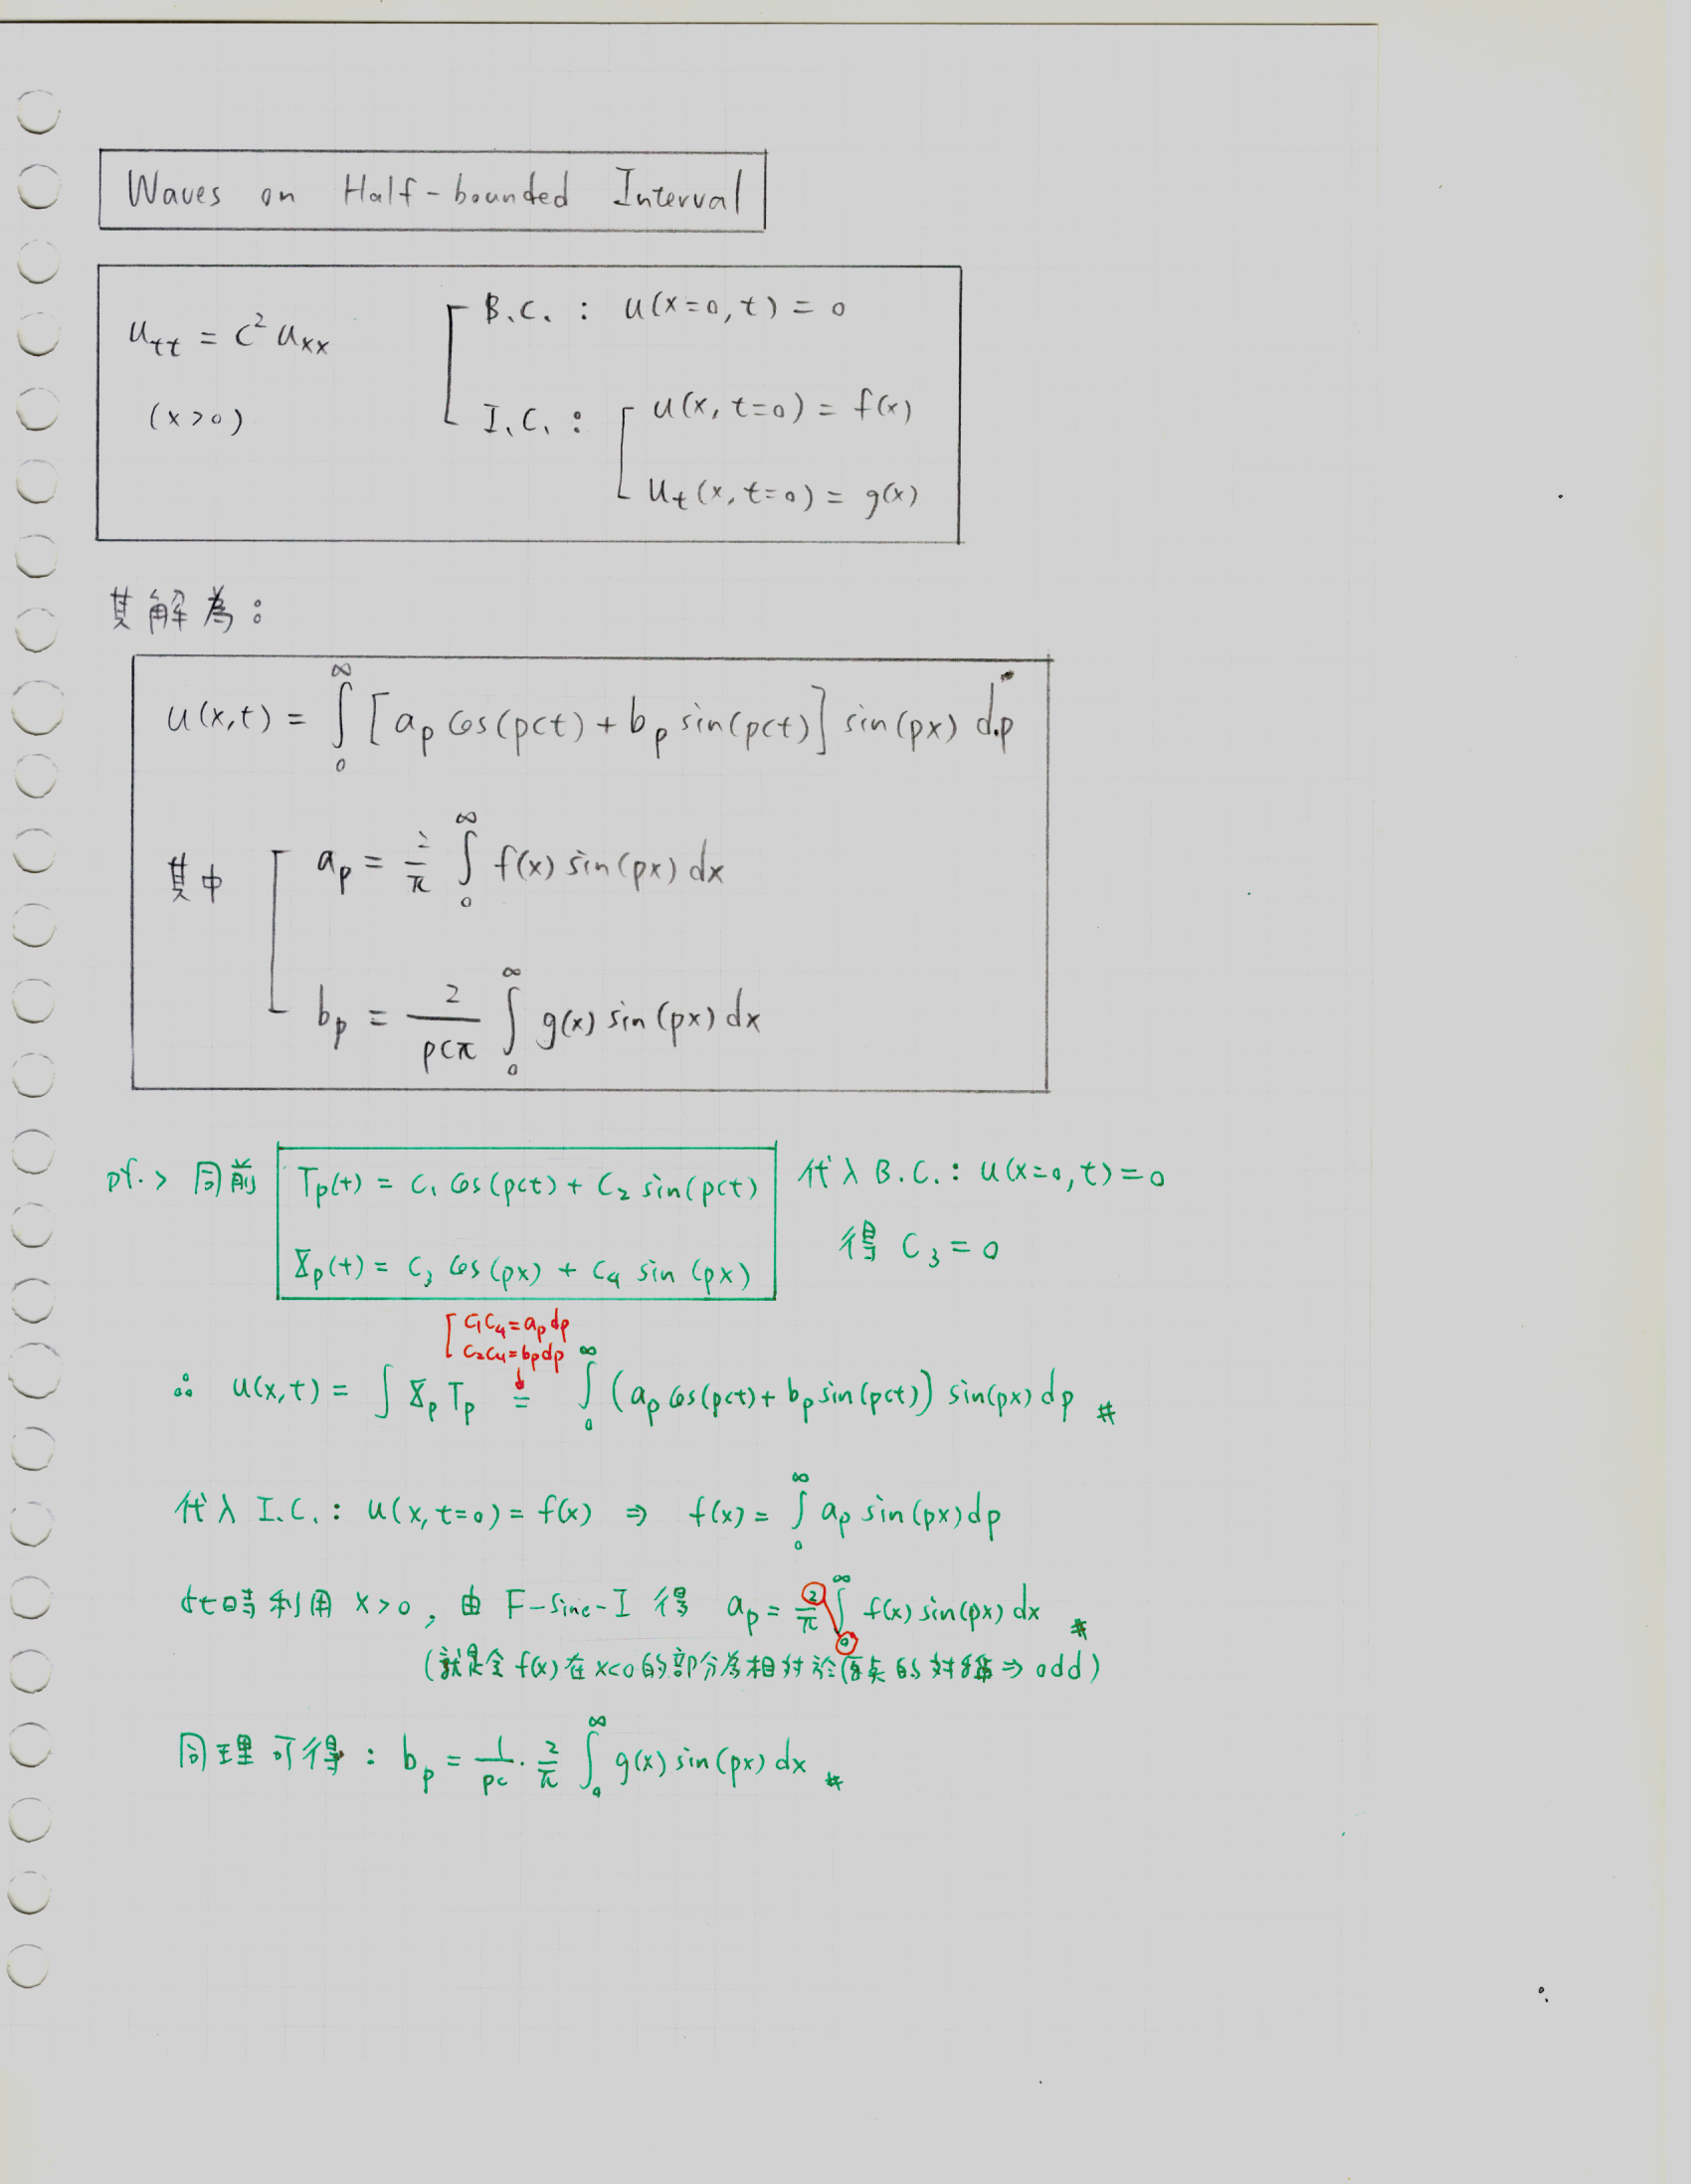 Waves on Half-bounded Interval
u_tt = c² u_xx
(x>0)
B.C. : u(x=0, t) = 0
I.C. : u(x, t=0) = f(x)
u_t(x, t=0) = g(x)
其解為：
u(x,t) = ∫₀^∞ [a_p cos(pct) + b_p sin(pct)] sin(px) dp
其中 a_p = 2/π ∫₀^∞ f(x) sin(px) dx
b_p = 2/(pcπ) ∫₀^∞ g(x) sin(px) dx
pf.> 同前 T_p(t) = C₁ cos(pct) + C₂ sin(pct) 代入 B.C. : u(x=0, t) = 0
X_p(t) = C₃ cos(px) + C₄ sin(px) 得 C₃ = 0
C₁C₄ = a_p dp
C₂C₄ = b_p dp
∴ u(x,t) = ∫ X_p T_p = ∫₀^∞ (a_p cos(pct) + b_p sin(pct)) sin(px) dp #
代入 I.C. : u(x, t=0) = f(x) ⇒ f(x) = ∫₀^∞ a_p sin(px) dp
此時利用 x>0, 由 F-Sine-I 得 a_p = 2/π ∫₀^∞ f(x) sin(px) dx #
(就是令 f(x) 在 x<0 的部分為相對於原点的対稱 ⇒ odd)
同理可得 : b_p = 1/pc · 2/π ∫₀^∞ g(x) sin(px) dx #